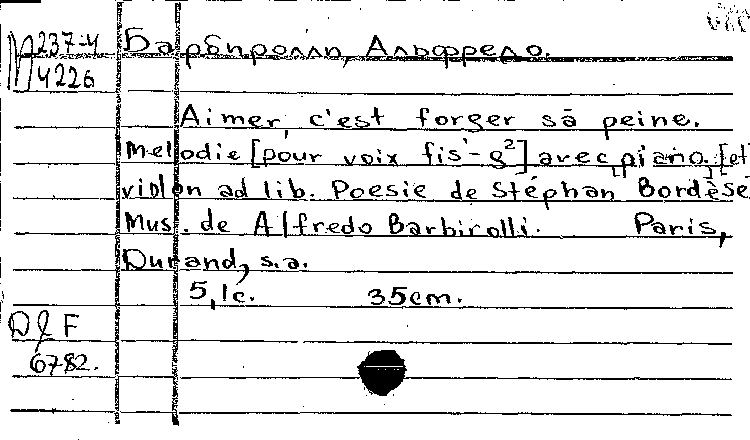 М 237-4
4226
Барбиролли, Альфредо.
Aimer, c'est forger sa peine.
Melodie [pour voix fis'-g²] avec piano. [et
violon ad lib. Poesie de Stéphan Bordèse
Mus. de Alfredo Barbirolli. Paris,
Durand, s.a.
5,1c. 35cm.
D & F
6782.